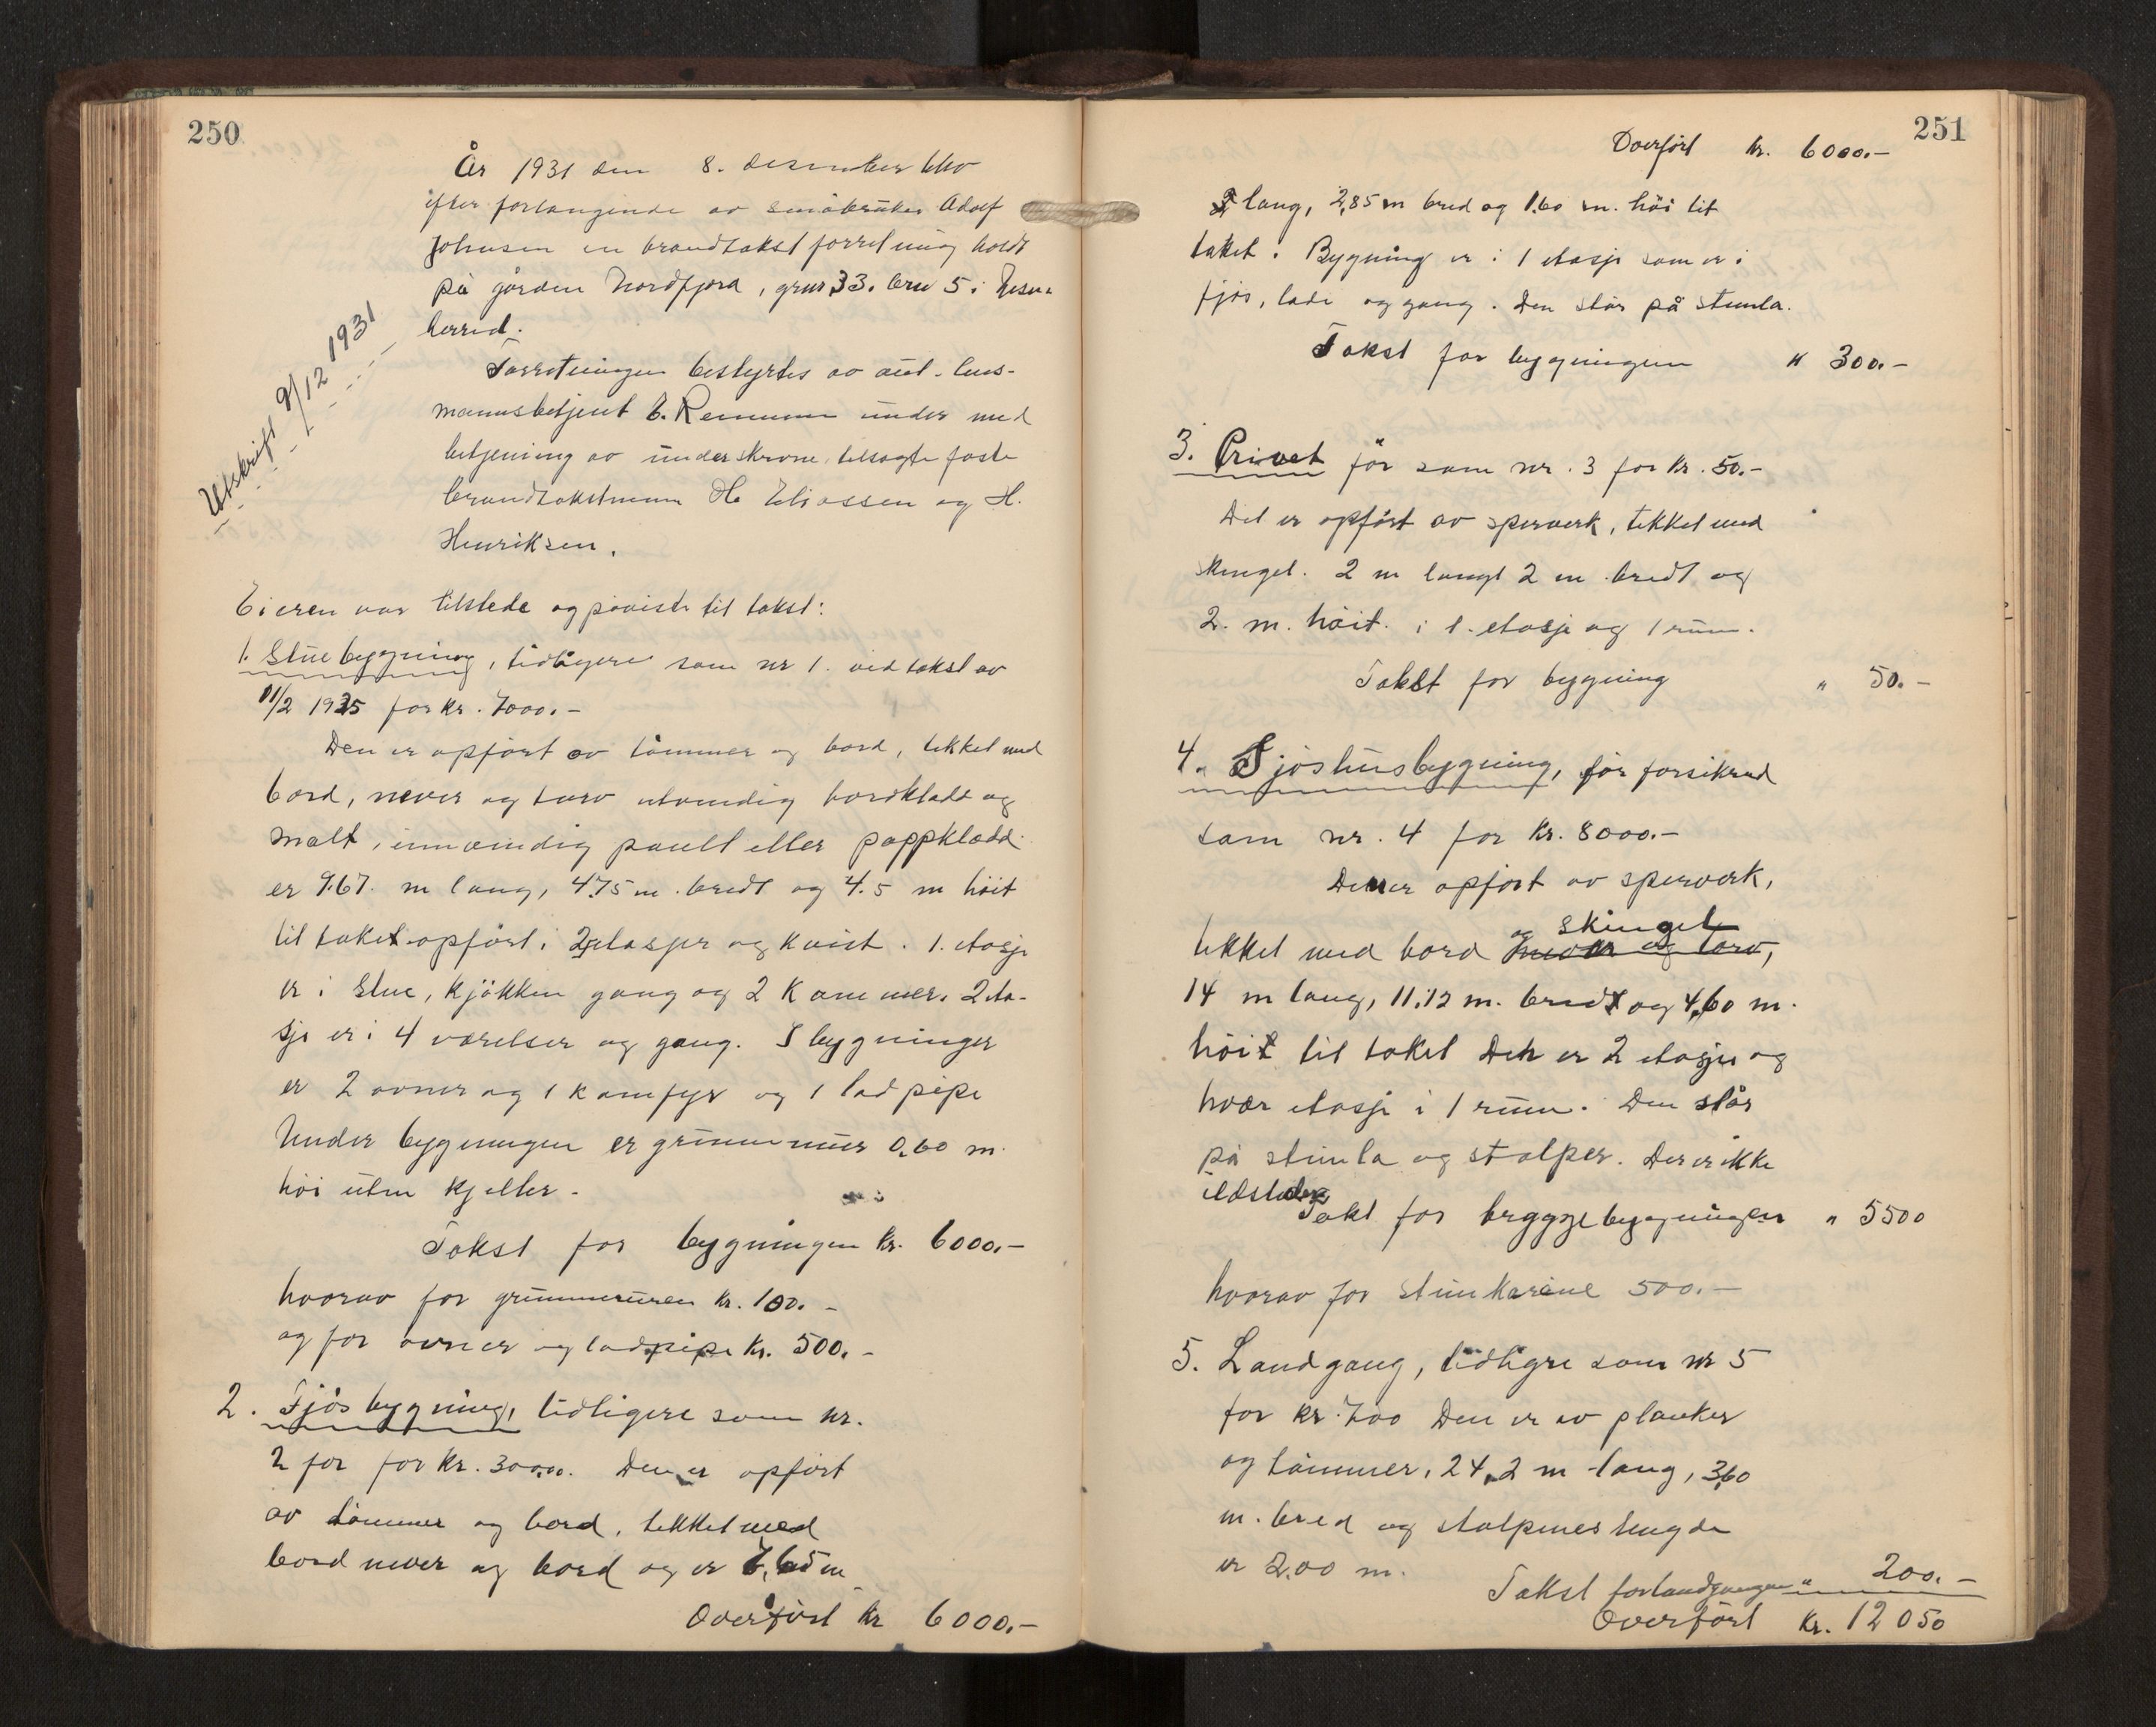 250
År 1931 den 8. desember blev
efter forlangende av småbruker Adolf
Johnsen en brandtakst forretning holdt
på gården Nordfjord, grnr 33. brn 5 i
herred.
Utskrift 9/12 1931
Forretningen bestyrtes av aut. lens-
mannsbetjent E. Remmen under med
betjening av underskrevne, tilsagte faste
brandtakstmenn H. Eliassen og H.
Henriksen.
Eieren var tilstede og påviste til takst:
1. Stuebygning, tidligere som nr 1. ved takst av
11/2 1925 for kr. 7000.-
Den er opført av tømmer og bord, tekket med
bord, never og torv utvendig bordklædt og
malt, innvendig panelt eller pappklædd
er 9.67. m lang, 4.75 m. bredt og 4.5 m høit
til taket opført i 2 etasjer og kvist. 1. etasje
er i stue, kjøkken gang og 2 kammer. 2 eta-
sje er i 4 værelser og gang. I bygninger
er 2 ovner og 1 komfyr og 1 lad pipe
Under bygningen er grunnmur 0.60 m.
høi uten kjeller.
Takst for bygningen kr. 6000.-
hvorav for grunnmuren kr. 100.-
og for ovner og ladpipe kr. 500.-
2. Fjøs bygning, tidligere som nr.
2 for for kr. 300.00. Den er opført
av tømmer og bord, tekket med
bord never og bord og er 7,65 m
Overført kr 6000.-
251
Overført kr. 6000.-
lang, 2,85 m bred og 1.60 m. høi til
taket. Bygning er i 1 etasje som er i
fjøs, lade og gang. Den står på stimla.
Takst for bygningen " 300.-
3. Privet før som nr. 3 for kr. 50.-
Det er opført av sperverk, tekket med
skingel. 2 m langt 2 m bredt og
2. m. høit. i 1. etasje og 1 rum.
Takst for bygning " 50.-
4. Sjøshusbygning, før forsikred
som nr. 4 for kr. 8000.-
Den er opført av sperverk,
og skingel
tekket med bord never og torv,
14 m lang, 11.12 m. bredt og 4,60 m.
høit til taket Den er 2 etasjer og
hvær etasje i 1 rum. Den står
på stimla og stolper. Der er ikke
ildsteder
Takt for bryggebygningen " 5500
hvorav for stimkarene 500.-
5. Landgang, tidligre som nr 5
for kr. 700 Den er av planker
og tømmer, 24,2 m lang, 3,60
m. bred og stolpenes lengde
er 2.00 m.
Takst for landgangen " 200.-
Overført kr. 12 050